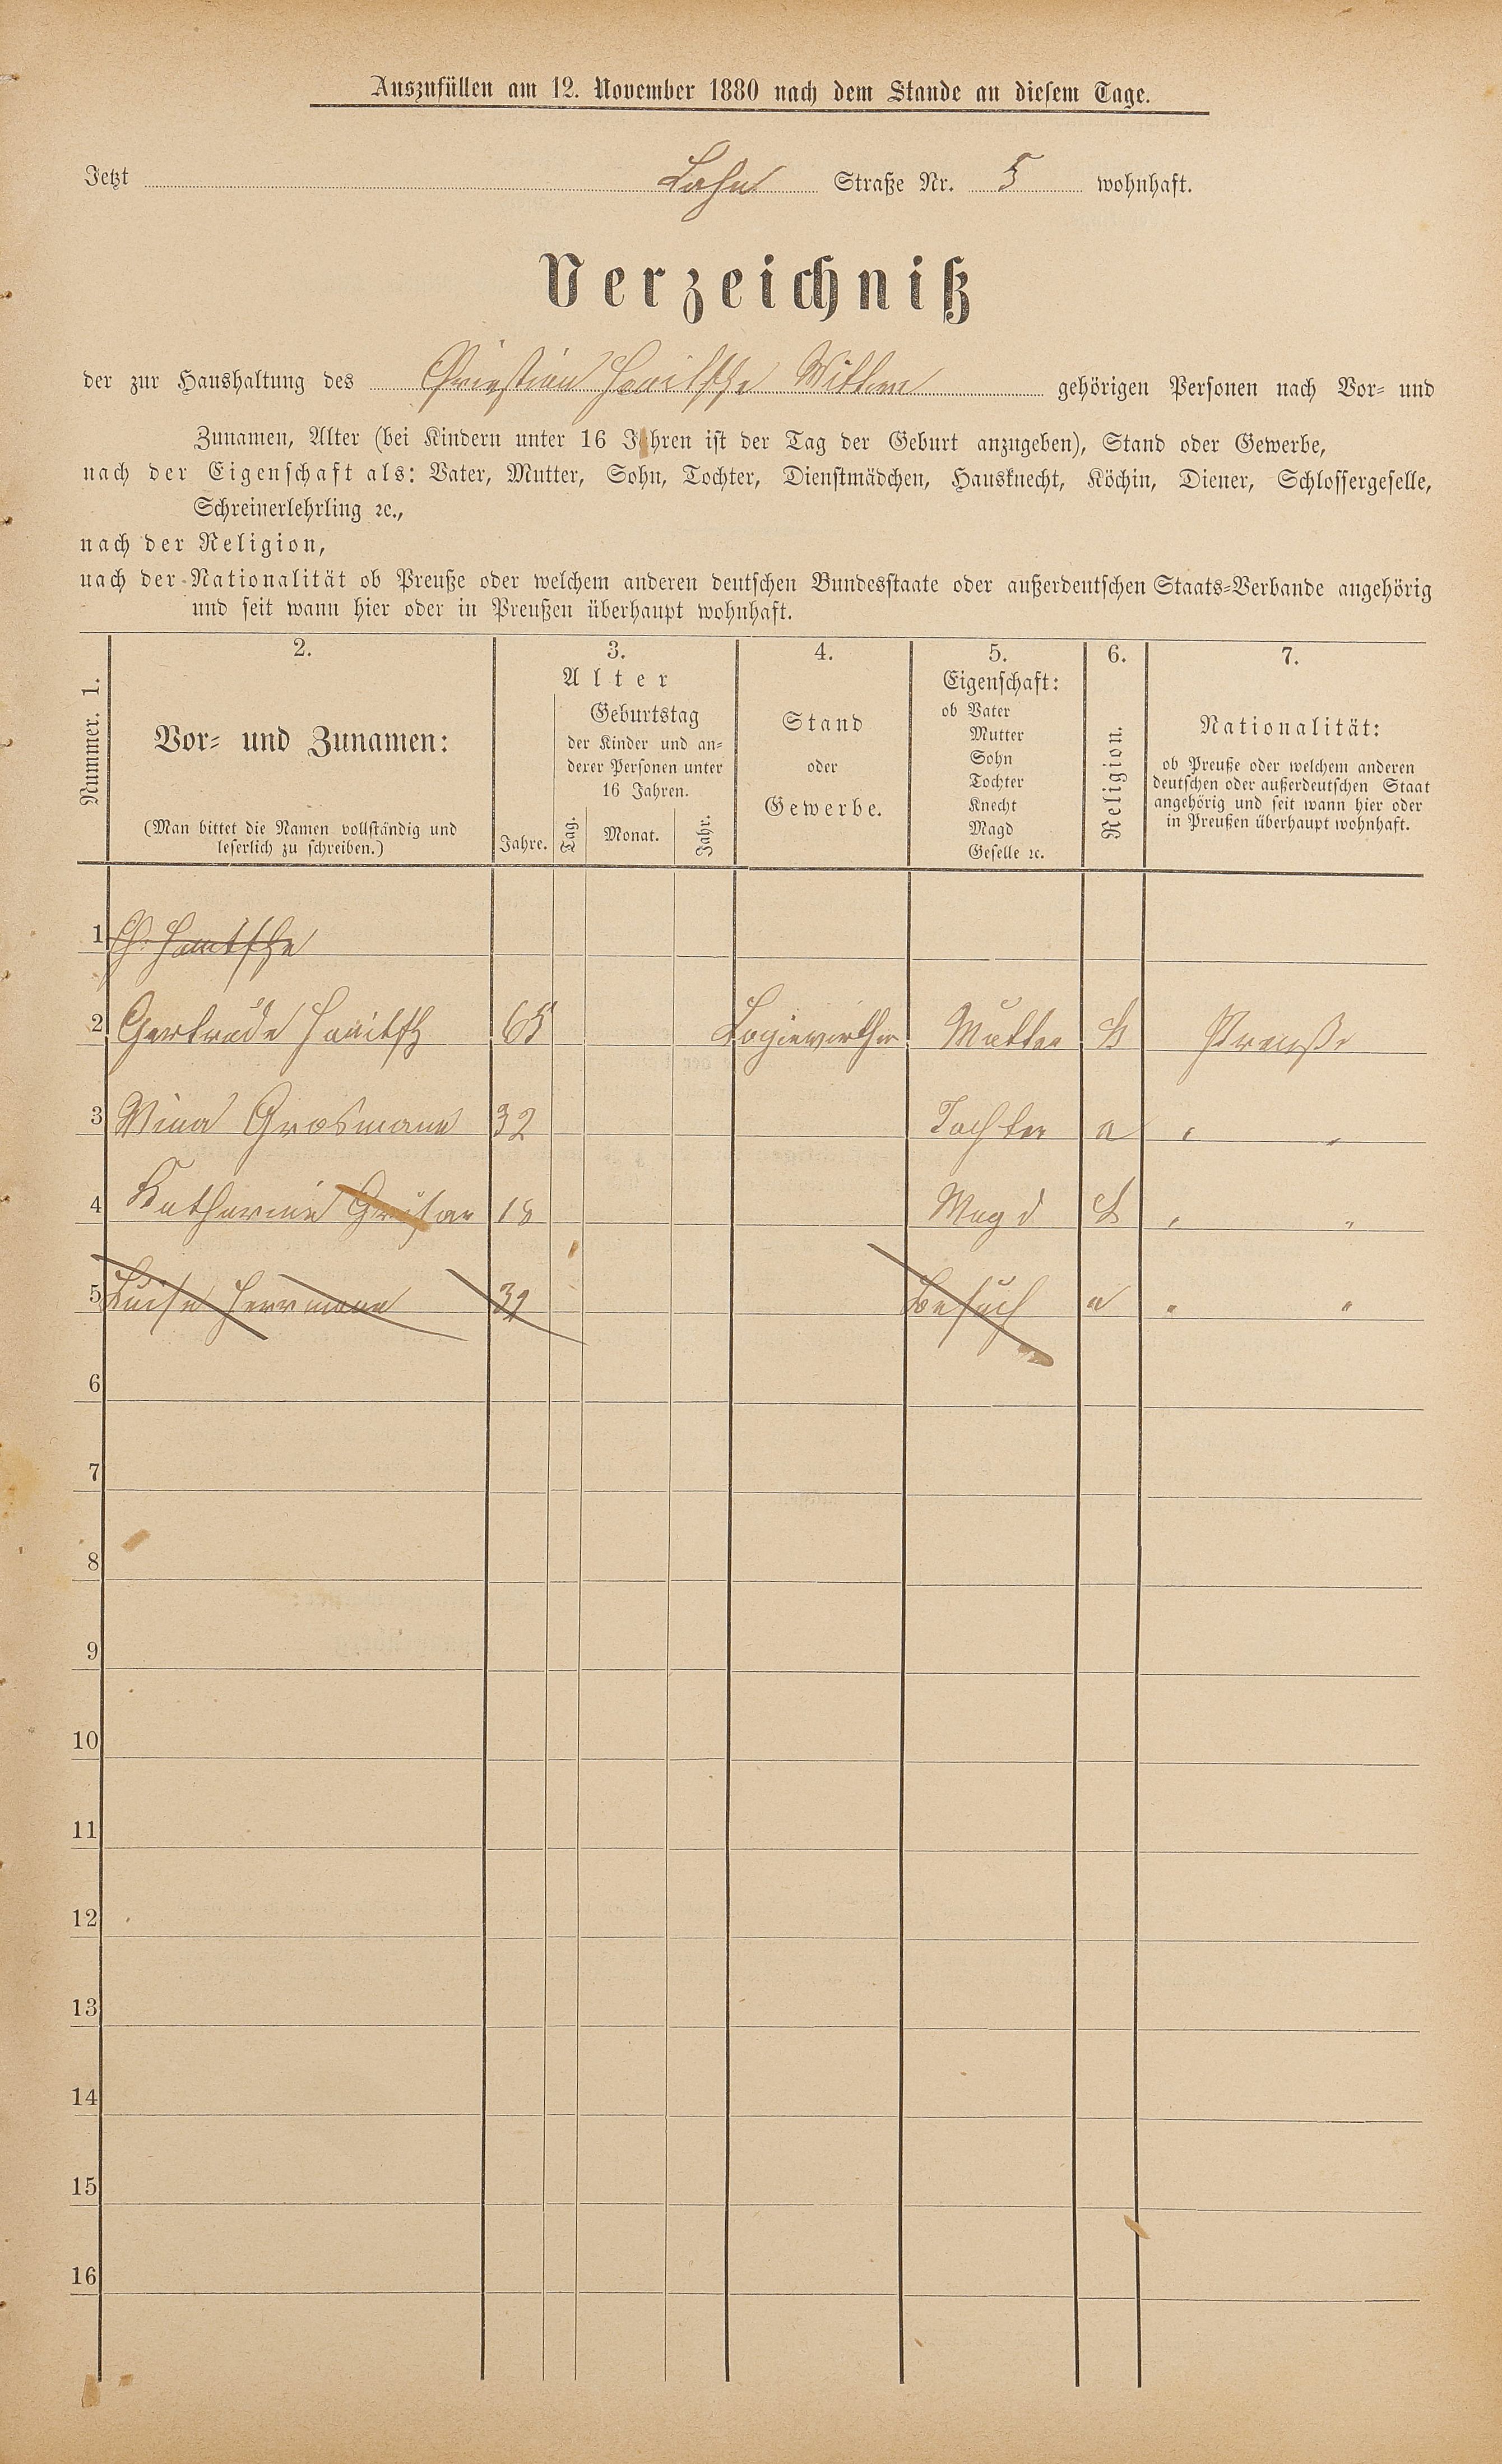 Auszufüllen am 12. November 1880 nach dem Stande an diesem Tage.
Jetzt Lahn Straße Nr. 5 wohnhaft.
Verzeichniß
der zur Haushaltung des Christian Wittwe gehörigen Personen nach Vor- und
Zunamen, Alter (bei Kindern unter 16 Jahren ist der Tag der Geburt anzugeben), Stand oder Gewerbe,
nach der Eigenschaft als: Vater, Mutter, Sohn, Tochter, Dienstmädchen, Hausknecht, Köchin, Diener, Schlossergeselle,
Schreinerlehrling ꝛc.,
nach der Religion,
nach der Nationalität ob Preuße oder welchem anderen deutschen Bundesstaate oder außerdeutschen Staats-Verbande angehörig
und seit wann hier oder in Preußen überhaupt wohnhaft.
Nummer. 1.
2.
Vor- und Zunamen:
(Man bittet die Namen vollständig und
leserlich zu schreiben.)
3.
Alter
Geburtstag
der Kinder und an-
derer Personen unter
16 Jahren.
Jahre. Tag. Monat. Jahr.
4.
Stand
oder
Gewerbe.
5.
Eigenschaft:
ob Vater
Mutter
Sohn
Tochter
Knecht
Magd
Geselle ꝛc.
6.
Religion.
7.
Nationalität:
ob Preuße oder welchem anderen
deutschen oder außerdeutschen Staat
angehörig und seit wann hier oder
in Preußen überhaupt wohnhaft.
1 Ch.
2 Gertrude 65 Logiewirthin Mutter k Preuße
3 Mina Grosmann 32 Tochter e " "
4 Katharine 18 Magd k " "
5 Luise Herrmann 39 Besuch e " "
6
7
8
9
10
11
12
13
14
15
16